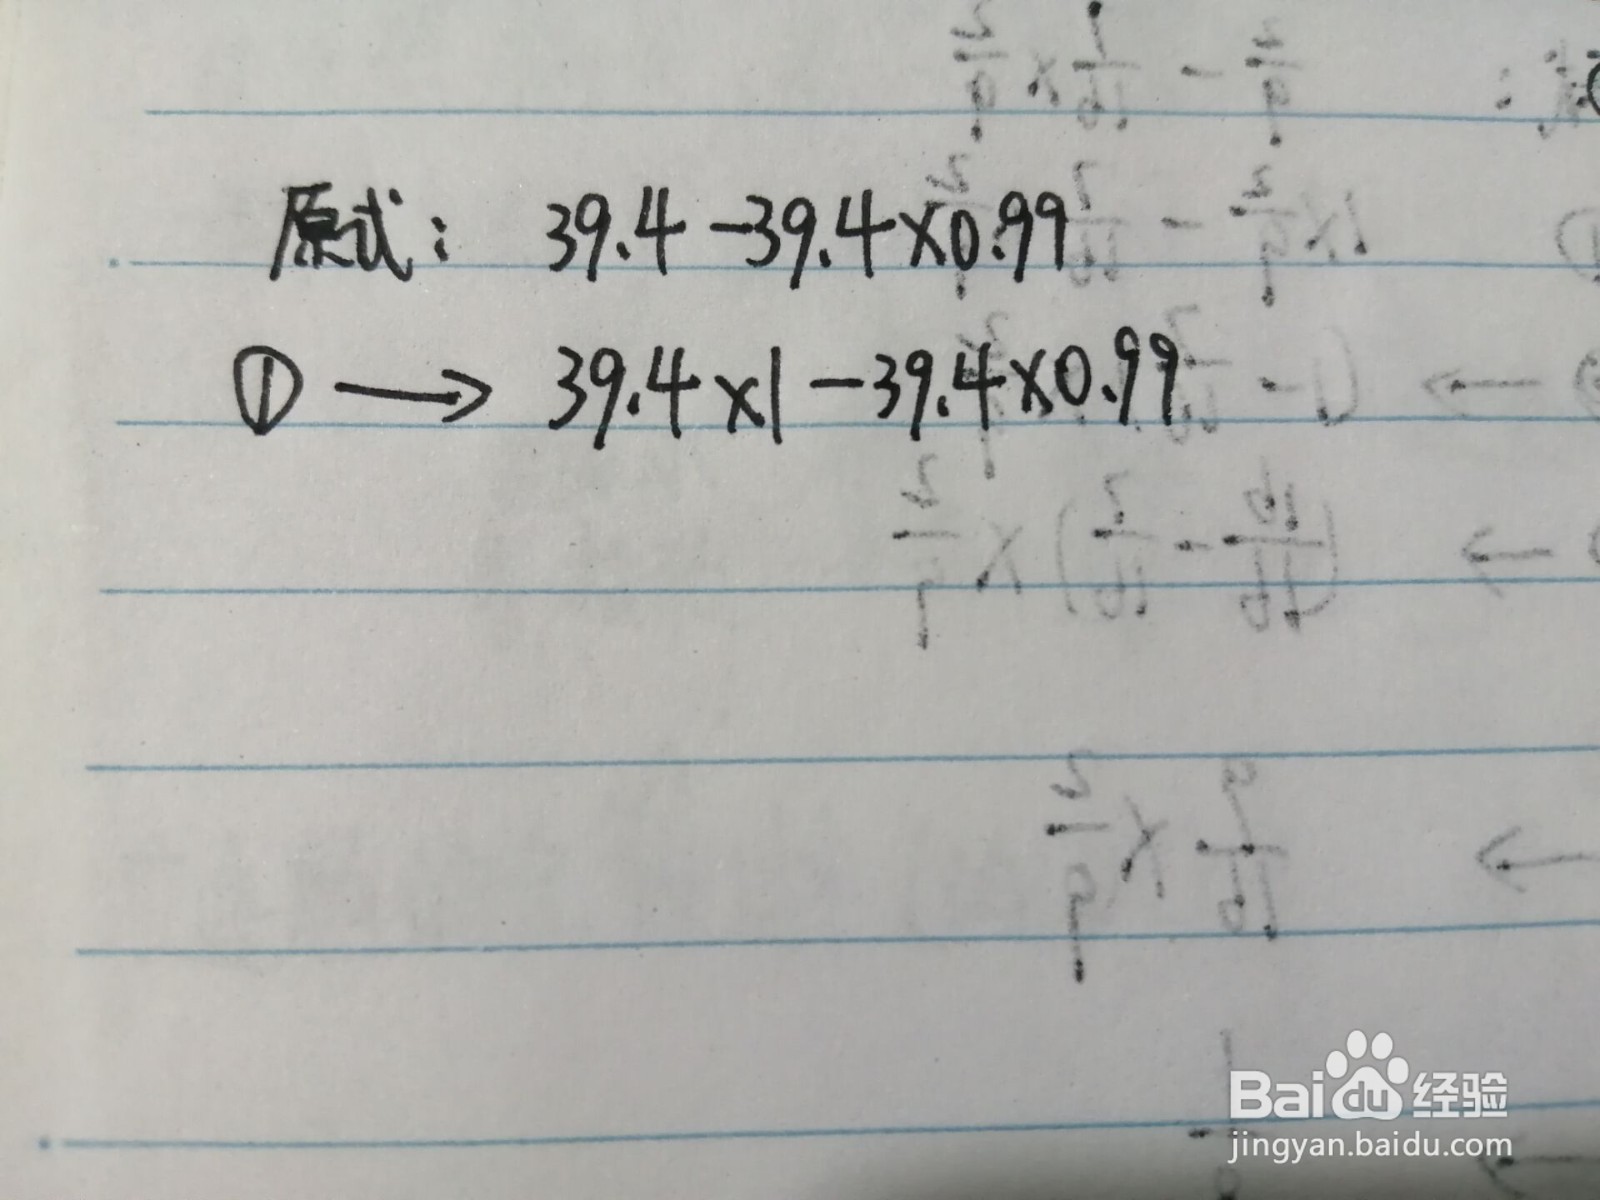 原式: 39.4-39.4×0.99
① → 39.4×1-39.4×0.99
Baidu经验
jingyan.baidu.com